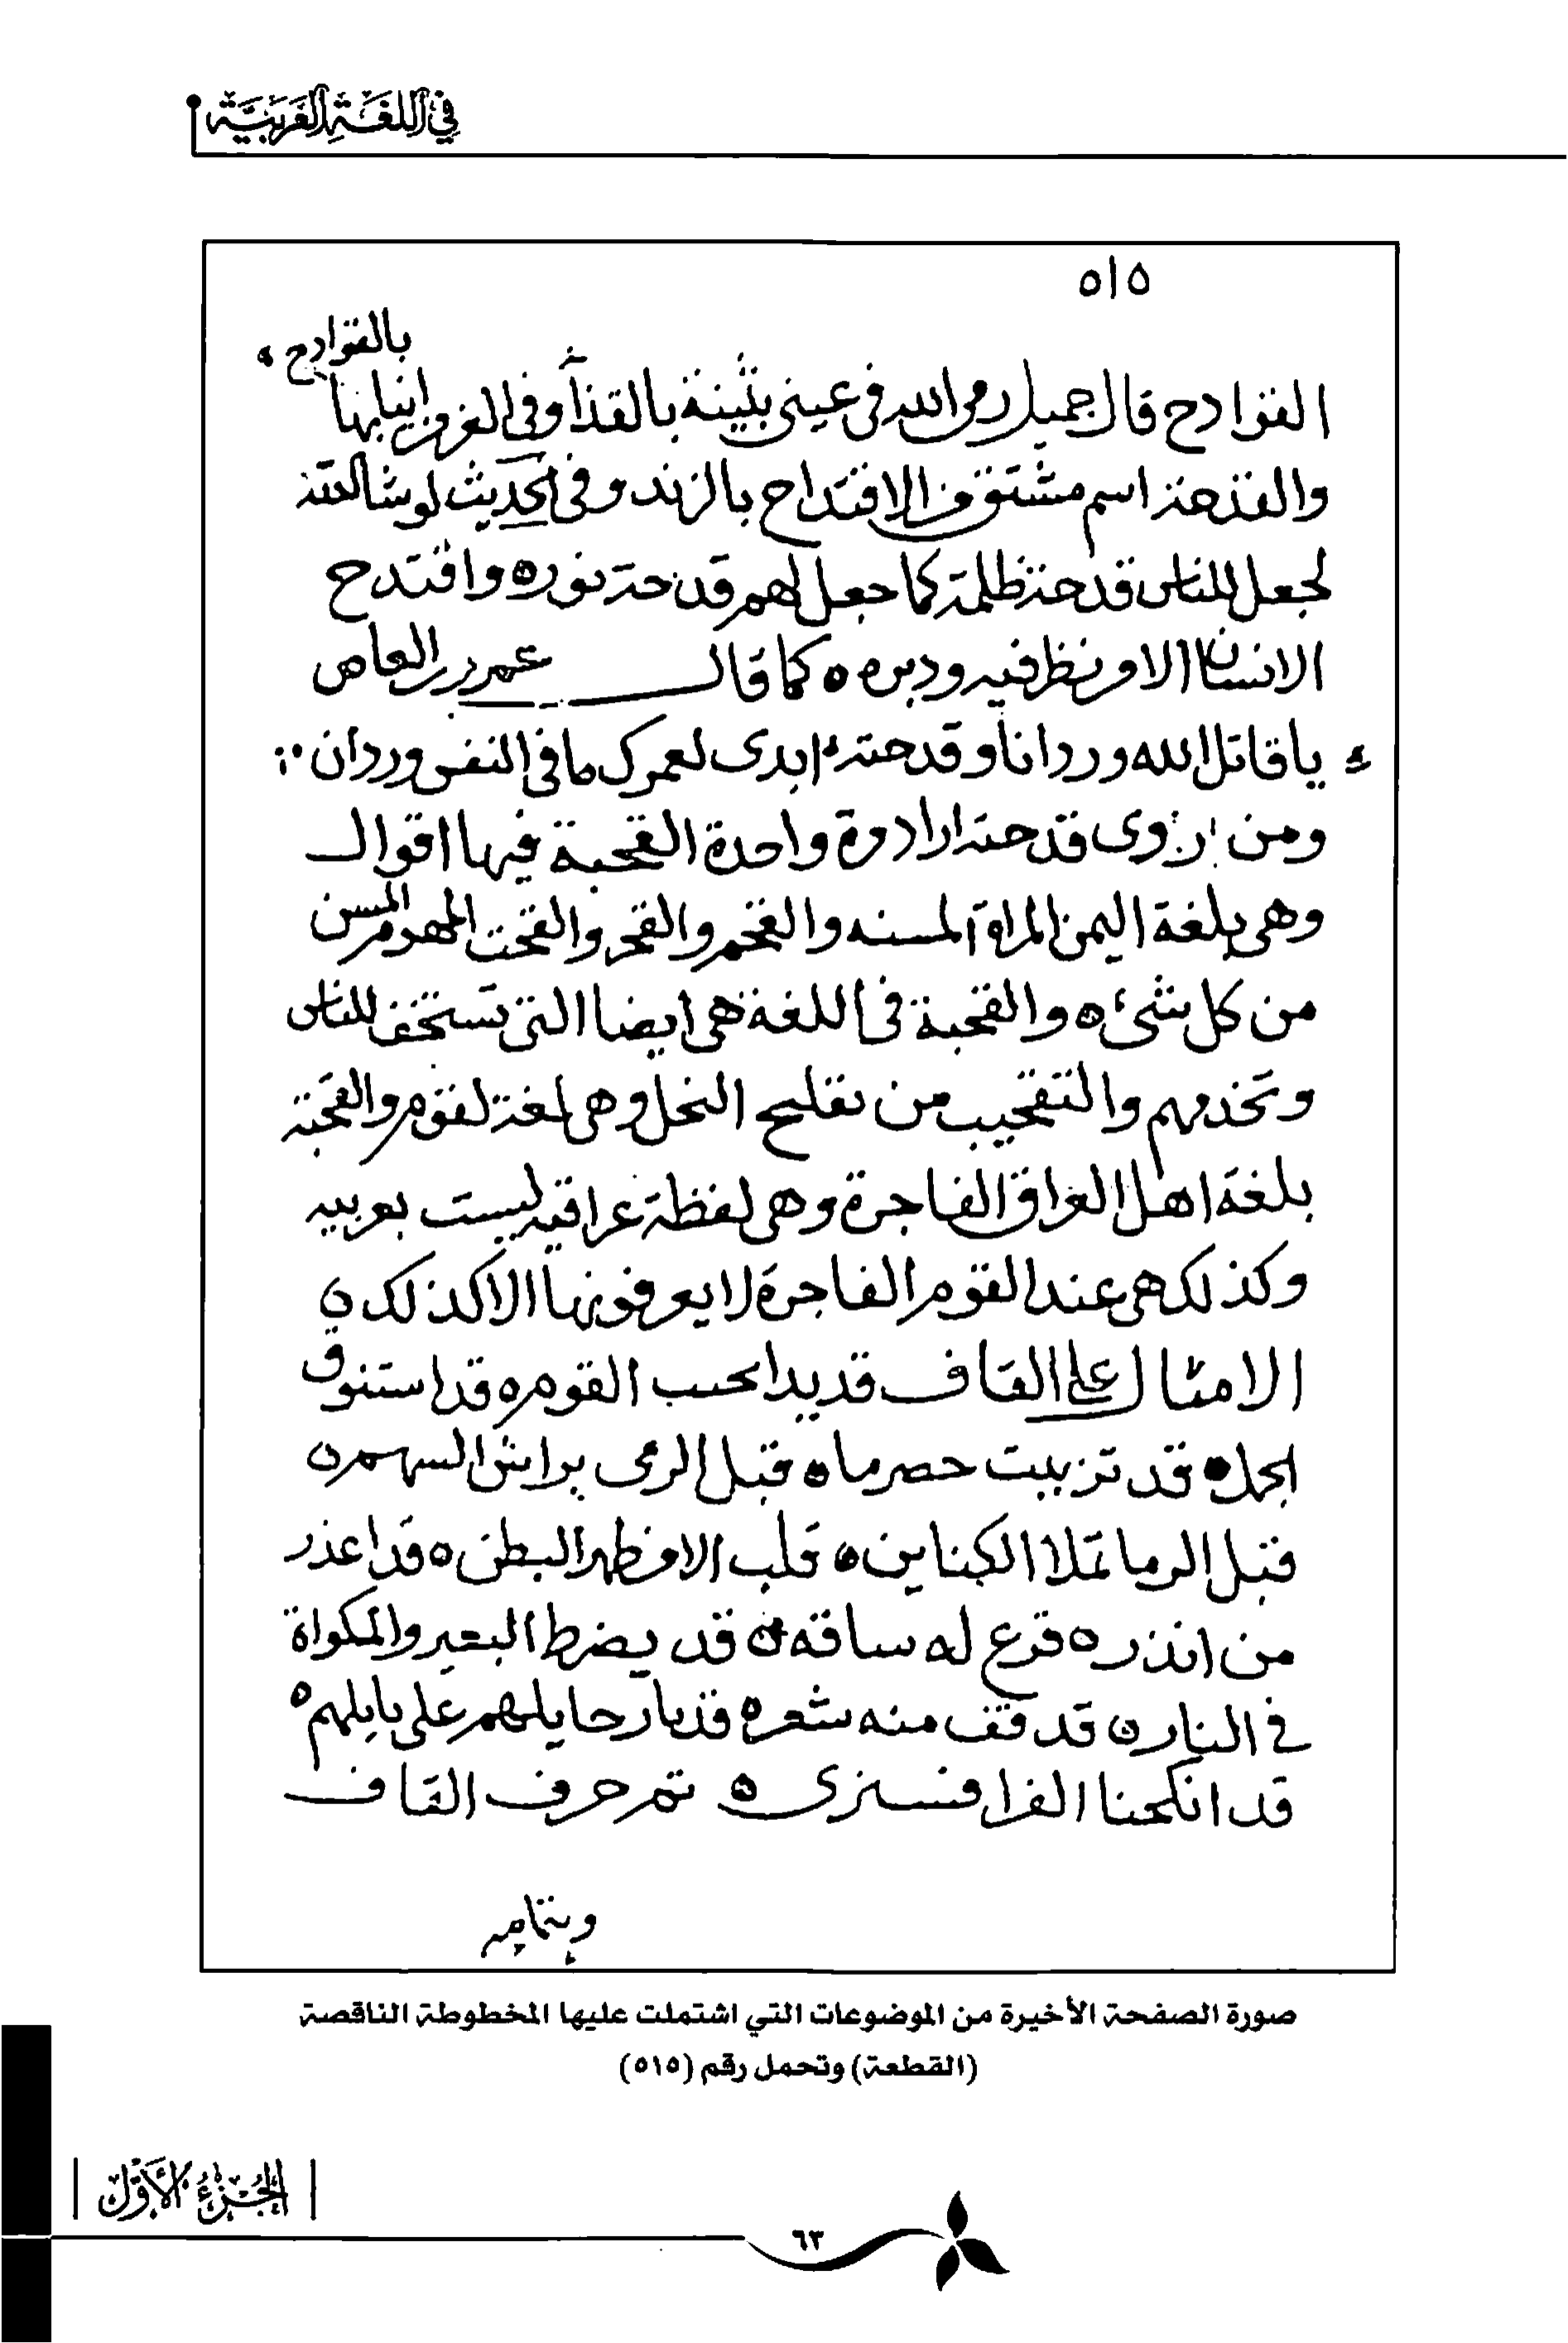 في اللغة العربية
٥١٥
بالقوادح
القوادح قال جميل رمى الله في عيني بثينة بالقذا وفي الغر من انيابها
والقدحة اسم مشتق من الاقتداح بالزند وفي الحديث لو شا الله
لجعل للناس قدحة ظلمة كما جعل لهم قدحة نوره واقتدح
الانسان الامر نظر فيه ودبره ه كما قال عمرو بن العاص
يا قاتل الله وردانا وقدحته ابدى لعمرك ما في النفس وردان
ومن روى قدحته اراد مرة واحدة القحبة فيها اقوال
وهي بلغة اليمن المراة المسنه والقحم والقحر والقحب الهرم المسن
من كل شيء ه والقحبة في اللغة هي ايضا التي تستخف للناس
وتخدمهم والتقحيب من تقليح النخل وهي لغة لقوم والقحبة
بلغة اهل العراق الفاجرة وهي لفظة عراقيه ليست بعربيه
وكذلك هي عند القوم الفاجرة لا يعرفونها الا كذلك ن
الامثال على القاف قد يدا بحسب القوم ه قد استنوق
الجمل ه قد تزببت حصرما ه قبل الرمي يراش السهم ن
قبل الرما تملا الكناين ه قلب الامر ظهرا لبطن ه قد اعذر
من انذر ه قرع له ساقه ه قد يضرط البعير والمكواة
في النار ن قد قف منه شعره قد بار حابلهم على نابلهم ه
قد انكحنا الفرا فسنرى ه تم حرف القاف
وبتمامه
صورة الصفحة الأخيرة من الموضوعات التي اشتملت عليها المخطوطة الناقصة
(القطعة) وتحمل رقم (٥١٥)
الجزء الأول
٦٣